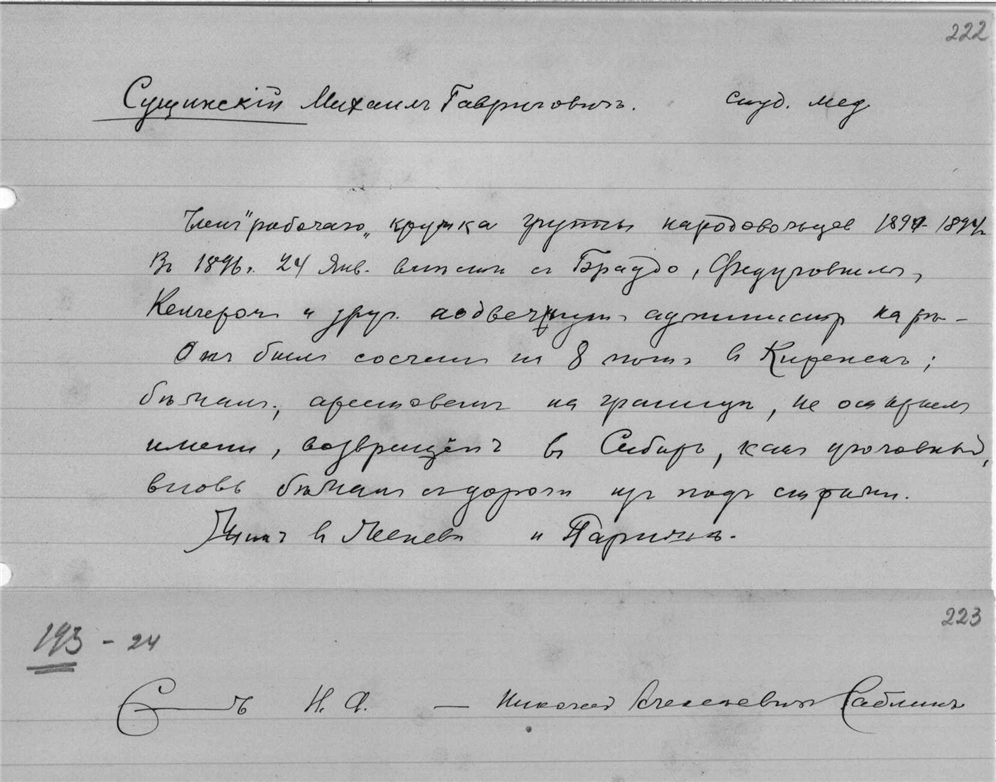 222
Сущинскій Михаилъ Гавриловичъ. студ. мед
Членъ "рабочаго" кружка группы народовольцев 1891-1894
Въ 1896 г. 24 Янв. вмѣстѣ съ Браудо, Федуловымъ,
Келлеромъ и друг. подвергнутъ администр карѣ -
Онъ былъ сосланъ на 8 лѣтъ въ Киренскъ;
бѣжалъ, арестованъ на границѣ, не открылъ
имени, возвращёнъ въ Сибирь, какъ уголовный,
вновь бѣжалъ съ дороги изъ подъ стражи.
Жилъ въ Женевѣ и Парижѣ.
223
193 - 24
С—ъ Н. А. — Николай Алексеевичъ Саблинъ